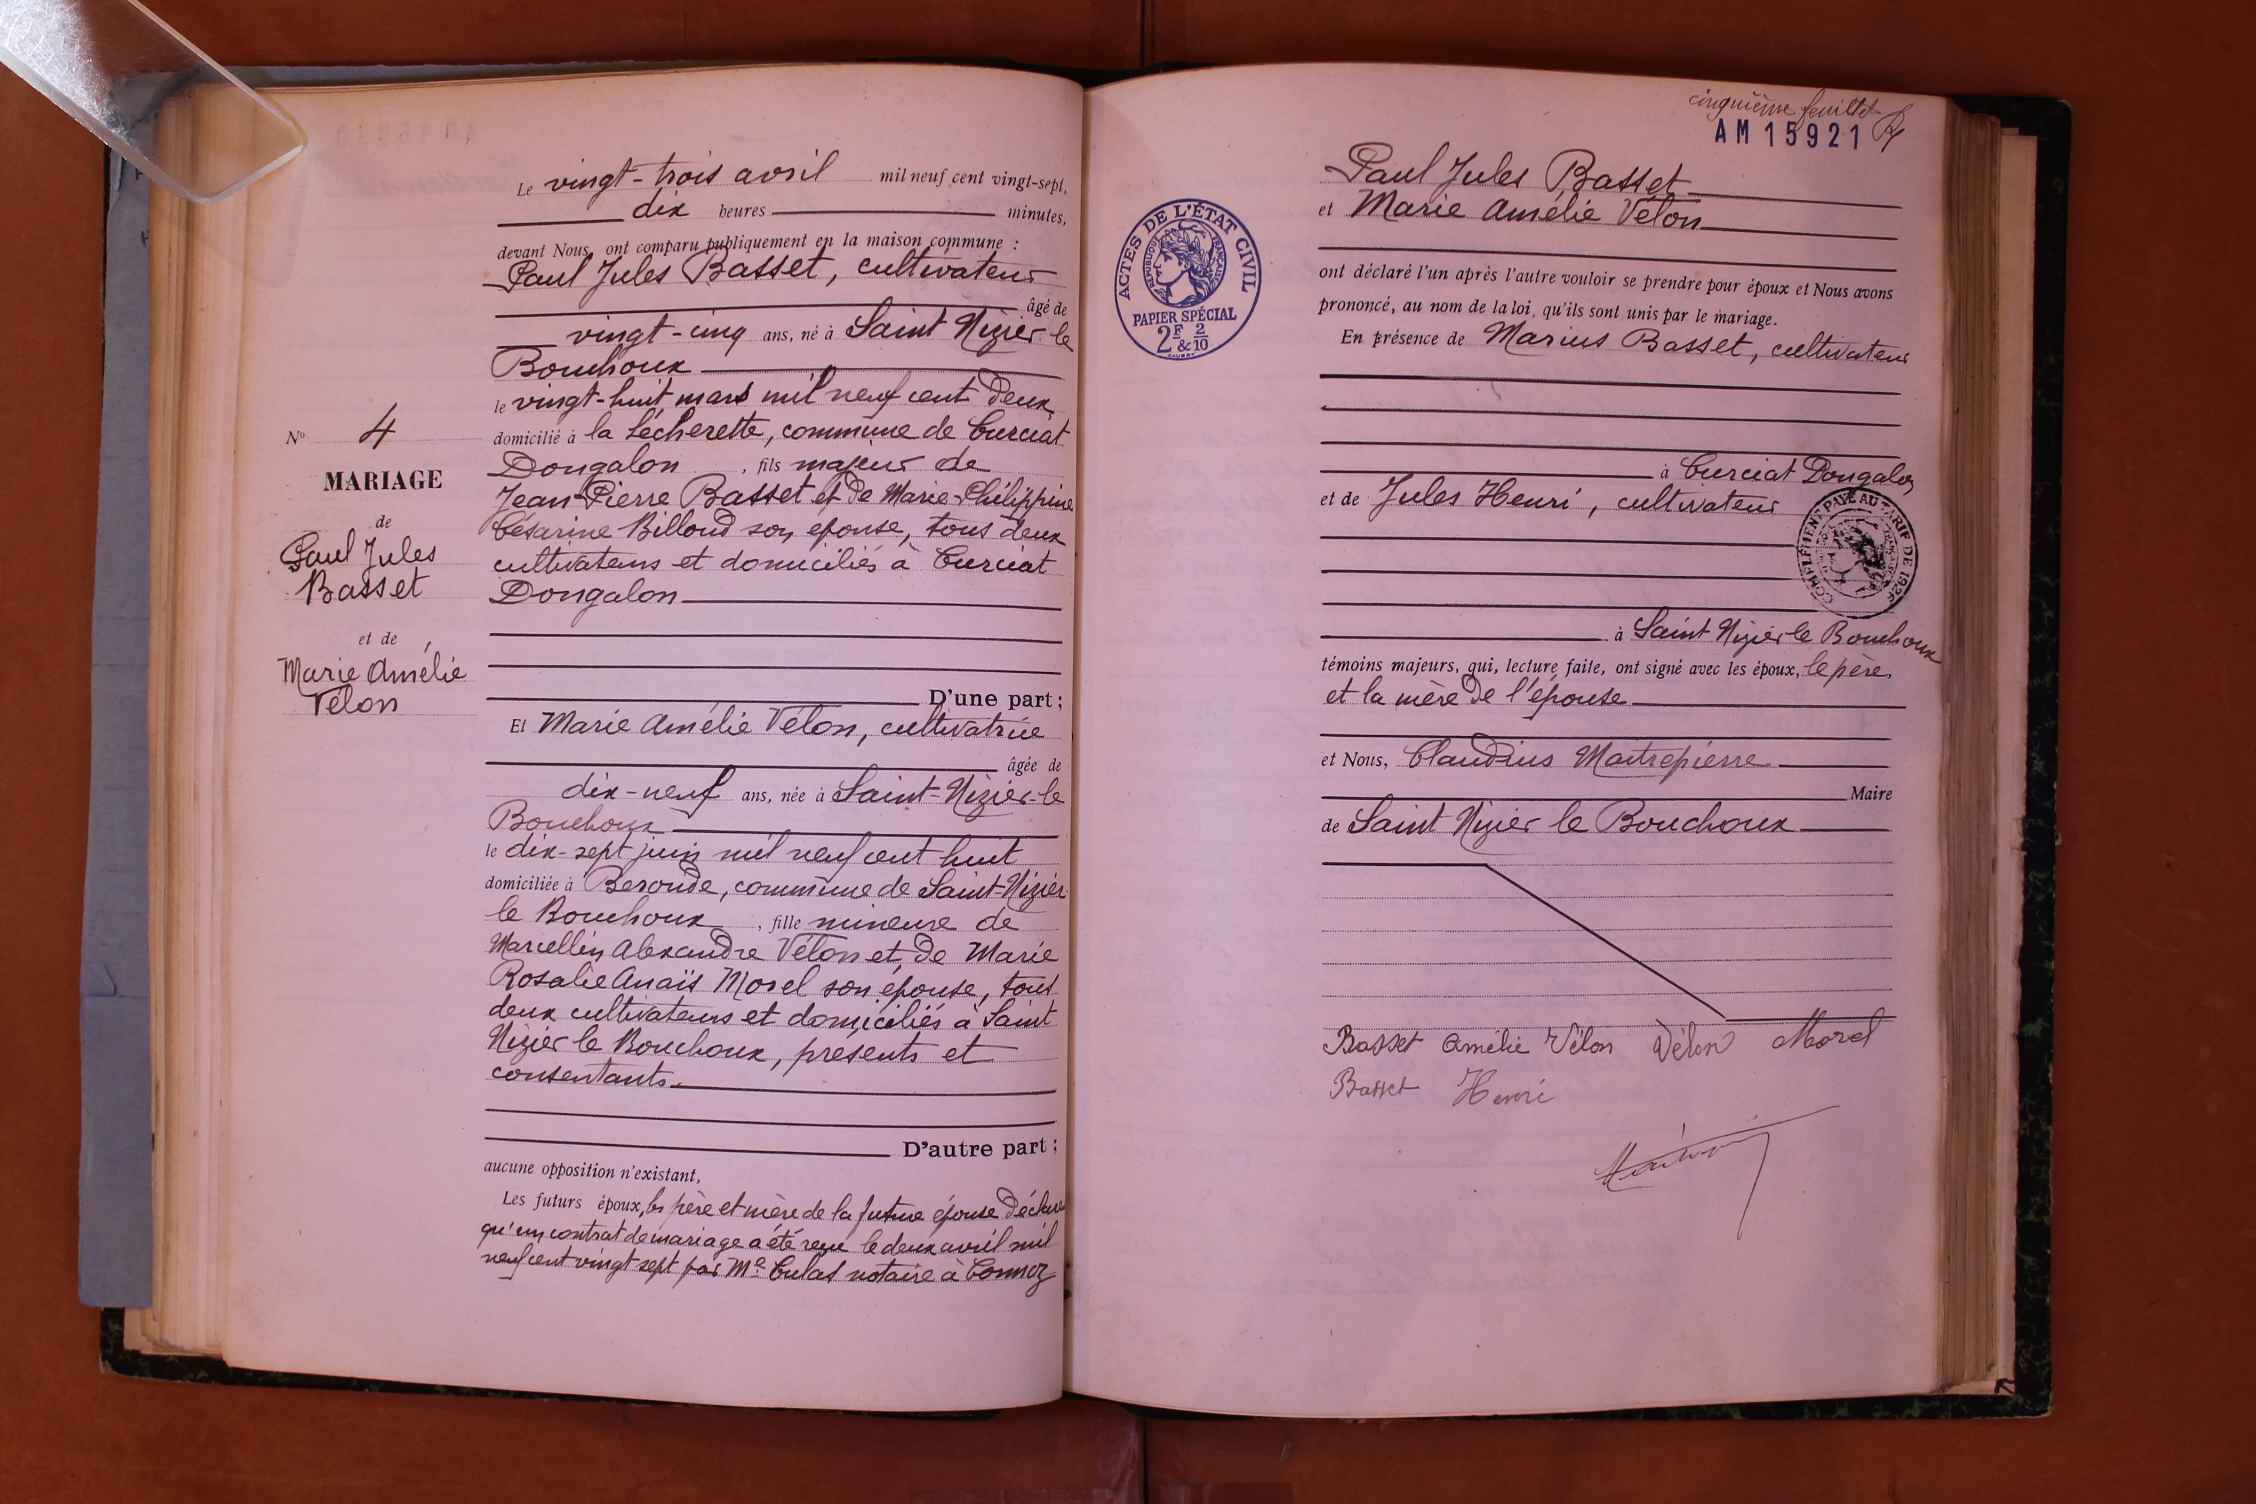 Le vingt-trois avril mil neuf cent vingt-sept,
dix heures minutes,
devant Nous, ont comparu publiquement en la maison commune :
Paul Jules Basset, cultivateur
âgé de
vingt-cinq ans, né à Saint Nizier-le
Bouchoux
le vingt-huit mars mil neuf cent deux,
domicilié à la Lécherette, commune de Curciat
Dongalon, fils majeur de
Jean-Pierre Basset et de Marie-Philippine
Césarine Billoud son épouse, tous deux
cultivateurs et domiciliés à Curciat
Dongalon
D'une part ;
Et Marie Amélie Vélon, cultivatrice
âgée de
dix-neuf ans, née à Saint-Nizier-le
Bouchoux
le dix-sept juin mil neuf cent huit
domiciliée à Beronde, commune de Saint-Nizier
le Bouchoux, fille mineure de
Marcellin Alexandre Vélon et de Marie
Rosalie Anaïs Morel son épouse, tous
deux cultivateurs et domiciliés à Saint
Nizier le Bouchoux, présents et
consentants.
D'autre part ;
aucune opposition n'existant,
Les futurs époux, les père et mère de la future épouse déclarent
qu'un contrat de mariage a été reçu le deux avril mil
neuf cent vingt sept par Me Culas notaire à Cormoz
No 4
MARIAGE
de
Paul Jules
Basset
et de
Marie Amélie
Vélon
cinquième feuillet
AM 15921
ACTES DE L'ÉTAT CIVIL
RÉPUBLIQUE FRANÇAISE
PAPIER SPÉCIAL
2F & 2/10
Paul Jules Basset
et Marie Amélie Vélon
ont déclaré l'un après l'autre vouloir se prendre pour époux et Nous avons
prononcé, au nom de la loi, qu'ils sont unis par le mariage.
En présence de Marius Basset, cultivateur
à Curciat Dongalon
et de Jules Henri, cultivateur
COMPLÉMENT PAYÉ AU TARIF DE 1926
à Saint Nizier le Bouchoux
témoins majeurs, qui, lecture faite, ont signé avec les époux, le père
et la mère de l'épouse
et Nous, Claudius Maitrepierre
Maire
de Saint Nizier le Bouchoux
Basset Amélie Vélon Vélon Morel
Basset Henri